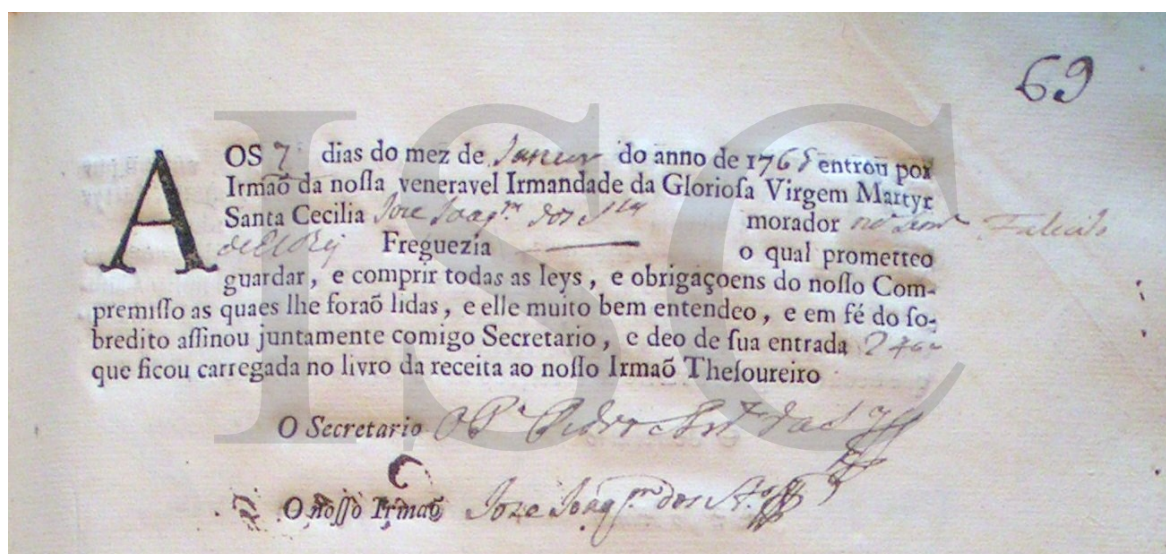 69
AOS 7 dias do mez de Janeiro do anno de 1765 entrou por
Irmaõ da noſſa veneravel Irmandade da Glorioſa Virgem Martyr
Santa Cecilia Joze Joaq.m dos S.tos morador no
de ElRey Freguezia — o qual prometteo
guardar, e comprir todas as leys, e obrigaçoens do noſſo Com-
premiſſo as quaes lhe foraõ lidas, e elle muito bem entendeo, e em fé do ſo-
bredito aſſinou juntamente comigo Secretario, e deo de ſua entrada
que ficou carregada no livro da receita ao noſſo Irmaõ Theſoureiro
O Secretario O P.e Pedro
O noſſo Irmaõ Joze Joaq.m dos S.tos
ISC